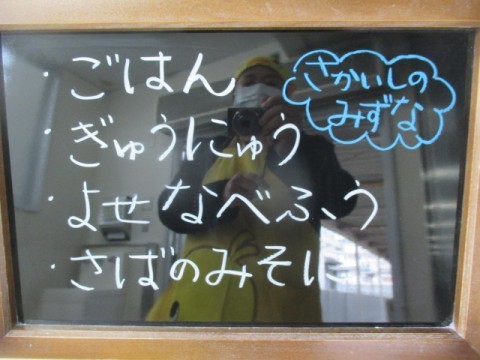 ・ごはん
・ぎゅうにゅう
・よせなべふう
・さばのみそに
さかいしの
みずな